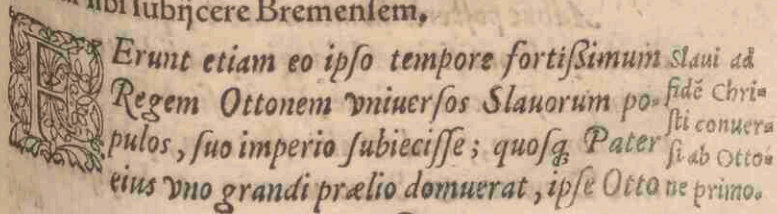 ſibi ſubijcere Bremenſem.
FErunt etiam eo ipſo tempore fortiſsimum
Regem Ottonem vniuerſos Slauorum po-
pulos, ſuo imperio ſubieciſſe; quoſq; Pater
eius vno grandi prælio domuerat, ipſe Otto
Slaui ad
fidē Chri-
ſti conuer-
ſi ab Otto-
ne primo.